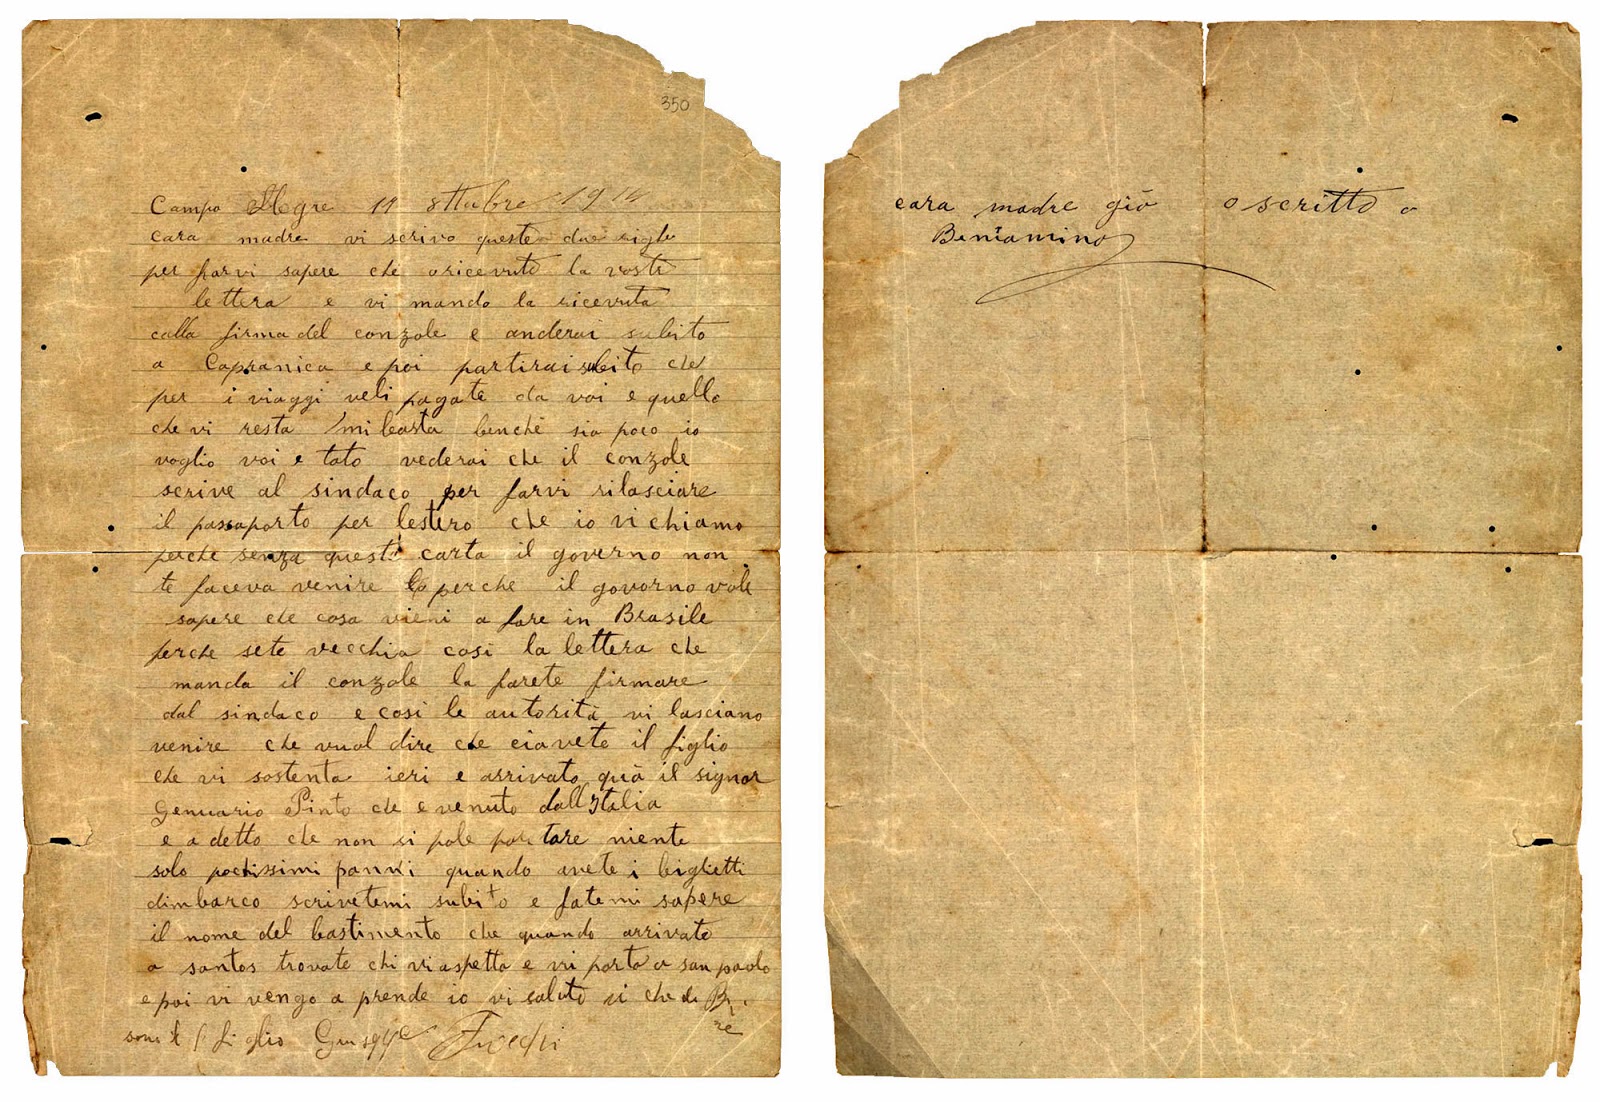 350
Campo Alegre 11 ottobre 1914
cara madre vi scrivo queste due righe
per farvi sapere che o ricevuto la vostr
lettera e vi mando la ricevuta
colla firma del conzole e anderai subito
a Capranica e poi partirai subito che
per i viaggi veli pagate da voi e quello
che vi resta mi basta benchè sia poco io
voglio voi e tato vederai che il conzole
scrive al sindaco per farvi rilasciare
il passaporto per lestero che io vi chiamo
perche senza questa carta il governo non
te faceva venire perche il governo vole
sapere che cosa vieni a fare in Brasile
perche sete vecchia così la lettera che
manda il conzole la farete firmare
dal sindaco e così le autorità vi lasciano
venire che vual dire che ciavete il figlio
che vi sostenta ieri e arrivato quà il signor
Genuario Pinto che e venuto dall'Italia
e a detto che non si pole portare niente
solo pochissimi panni quando avete i biglietti
dimbarco scrivetemi subito e fatemi sapere
il nome del bastimento che quando arrivate
a santos trovate chi vi aspetta e vi porta a san paolo
e poi vi vengo a prende io vi saluto
figlio Giuseppe
cara madre già o scritto a
Beniamino